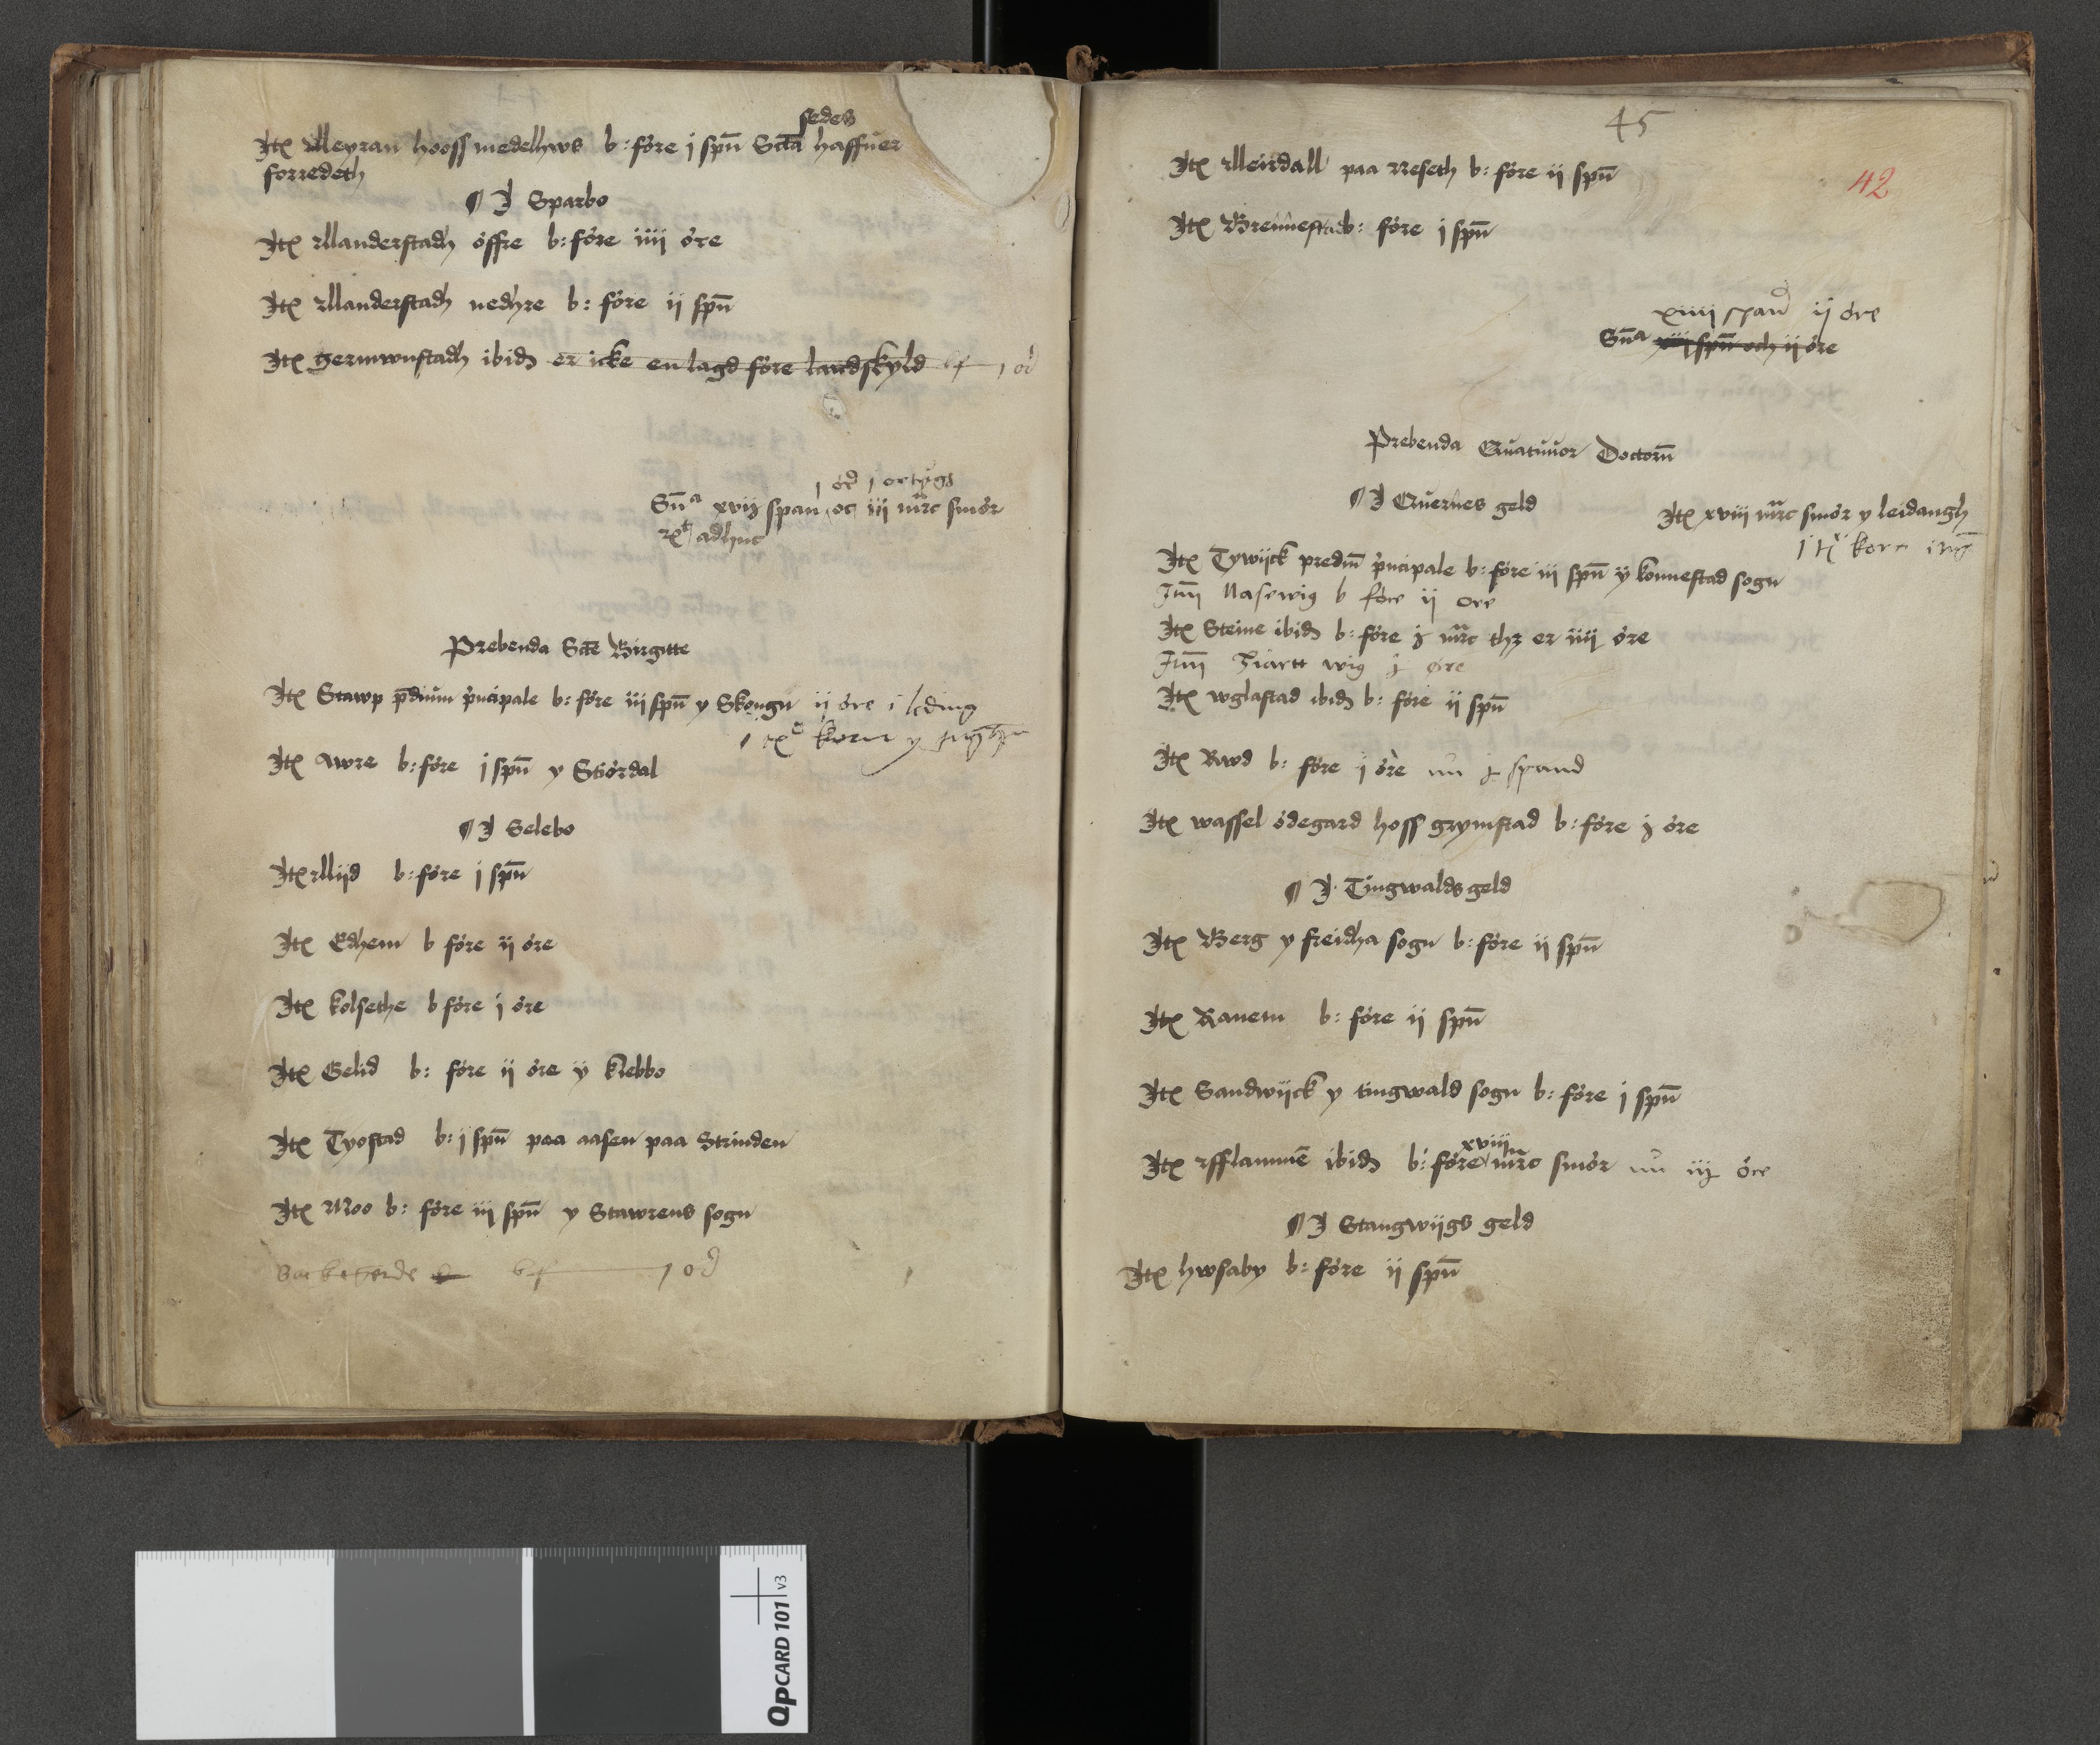 sedes
Itē Meyran hooss medelhws b: före j spn̄ Scta haffuer
forredeth
¶ I Sparbo
Itē Manderstadh öffre b: före iiij öre
Itē Manderstadh nedhre b: före ij spn̄
Itē germwnstadh ibid er icke en lagd före landskyld bf j
j ortugs
Sn̄a xvij span oc iij mrc smör
adhuc
Prebenda Scte Birgitte
Itē Stawp pdium pncipale b: före iij spn̄ y Skongn ij öre i leding
korn y
Itē Awre b: före j spn̄ y Stiördal
¶ I Selebo
Itē Mijd b: före j spn̄
Itē Edhem b före ij öre
Itē kolsethe b före j öre
Itē Gelid b: före ij öre y klebbo
Itē Tyostad b: j spn̄ paa aasen paa Strinden
Itē Moo b: före iij spn̄ y Stawrens sogn
bf j
45
42
Itē Meirdall paa Neseth b: före ij spn̄
Itē Brennestad b: före j spn̄
xiiij spand ij öre
Sn̄a spn̄ och ij öre
Prebenda Quatuuor Doctorū
¶ I Quernes geld
Itē xviij mrc smör y leidangh
korn
Itē Tywijck prediū pncipale b: före iij spn̄ y konnestad sogn
Itm̄ Nasewig b före ij öre
Itē Steine ibid b: före j mrc thz er iiij öre
Itm̄ wig öre
Itē wglastad ibid b: före ij spn̄
Itē Rwd b: före j öre nu spand
Itē wassel ödegard hoss grymstad b: före j öre
¶ I Tingwalds geld
Itē Berg y freidha sogn b: före ij spn̄
Itē Ranem b: före ij spn̄
Itē Sandwijck y tingwald sogn b: före j spn̄
xviij
Itē fflammē ibid b: före mrc smör nu iij öre
¶ I Stangwijgs geld
Itē hwsaby b: före ij spn̄
QPCARD 101 v3